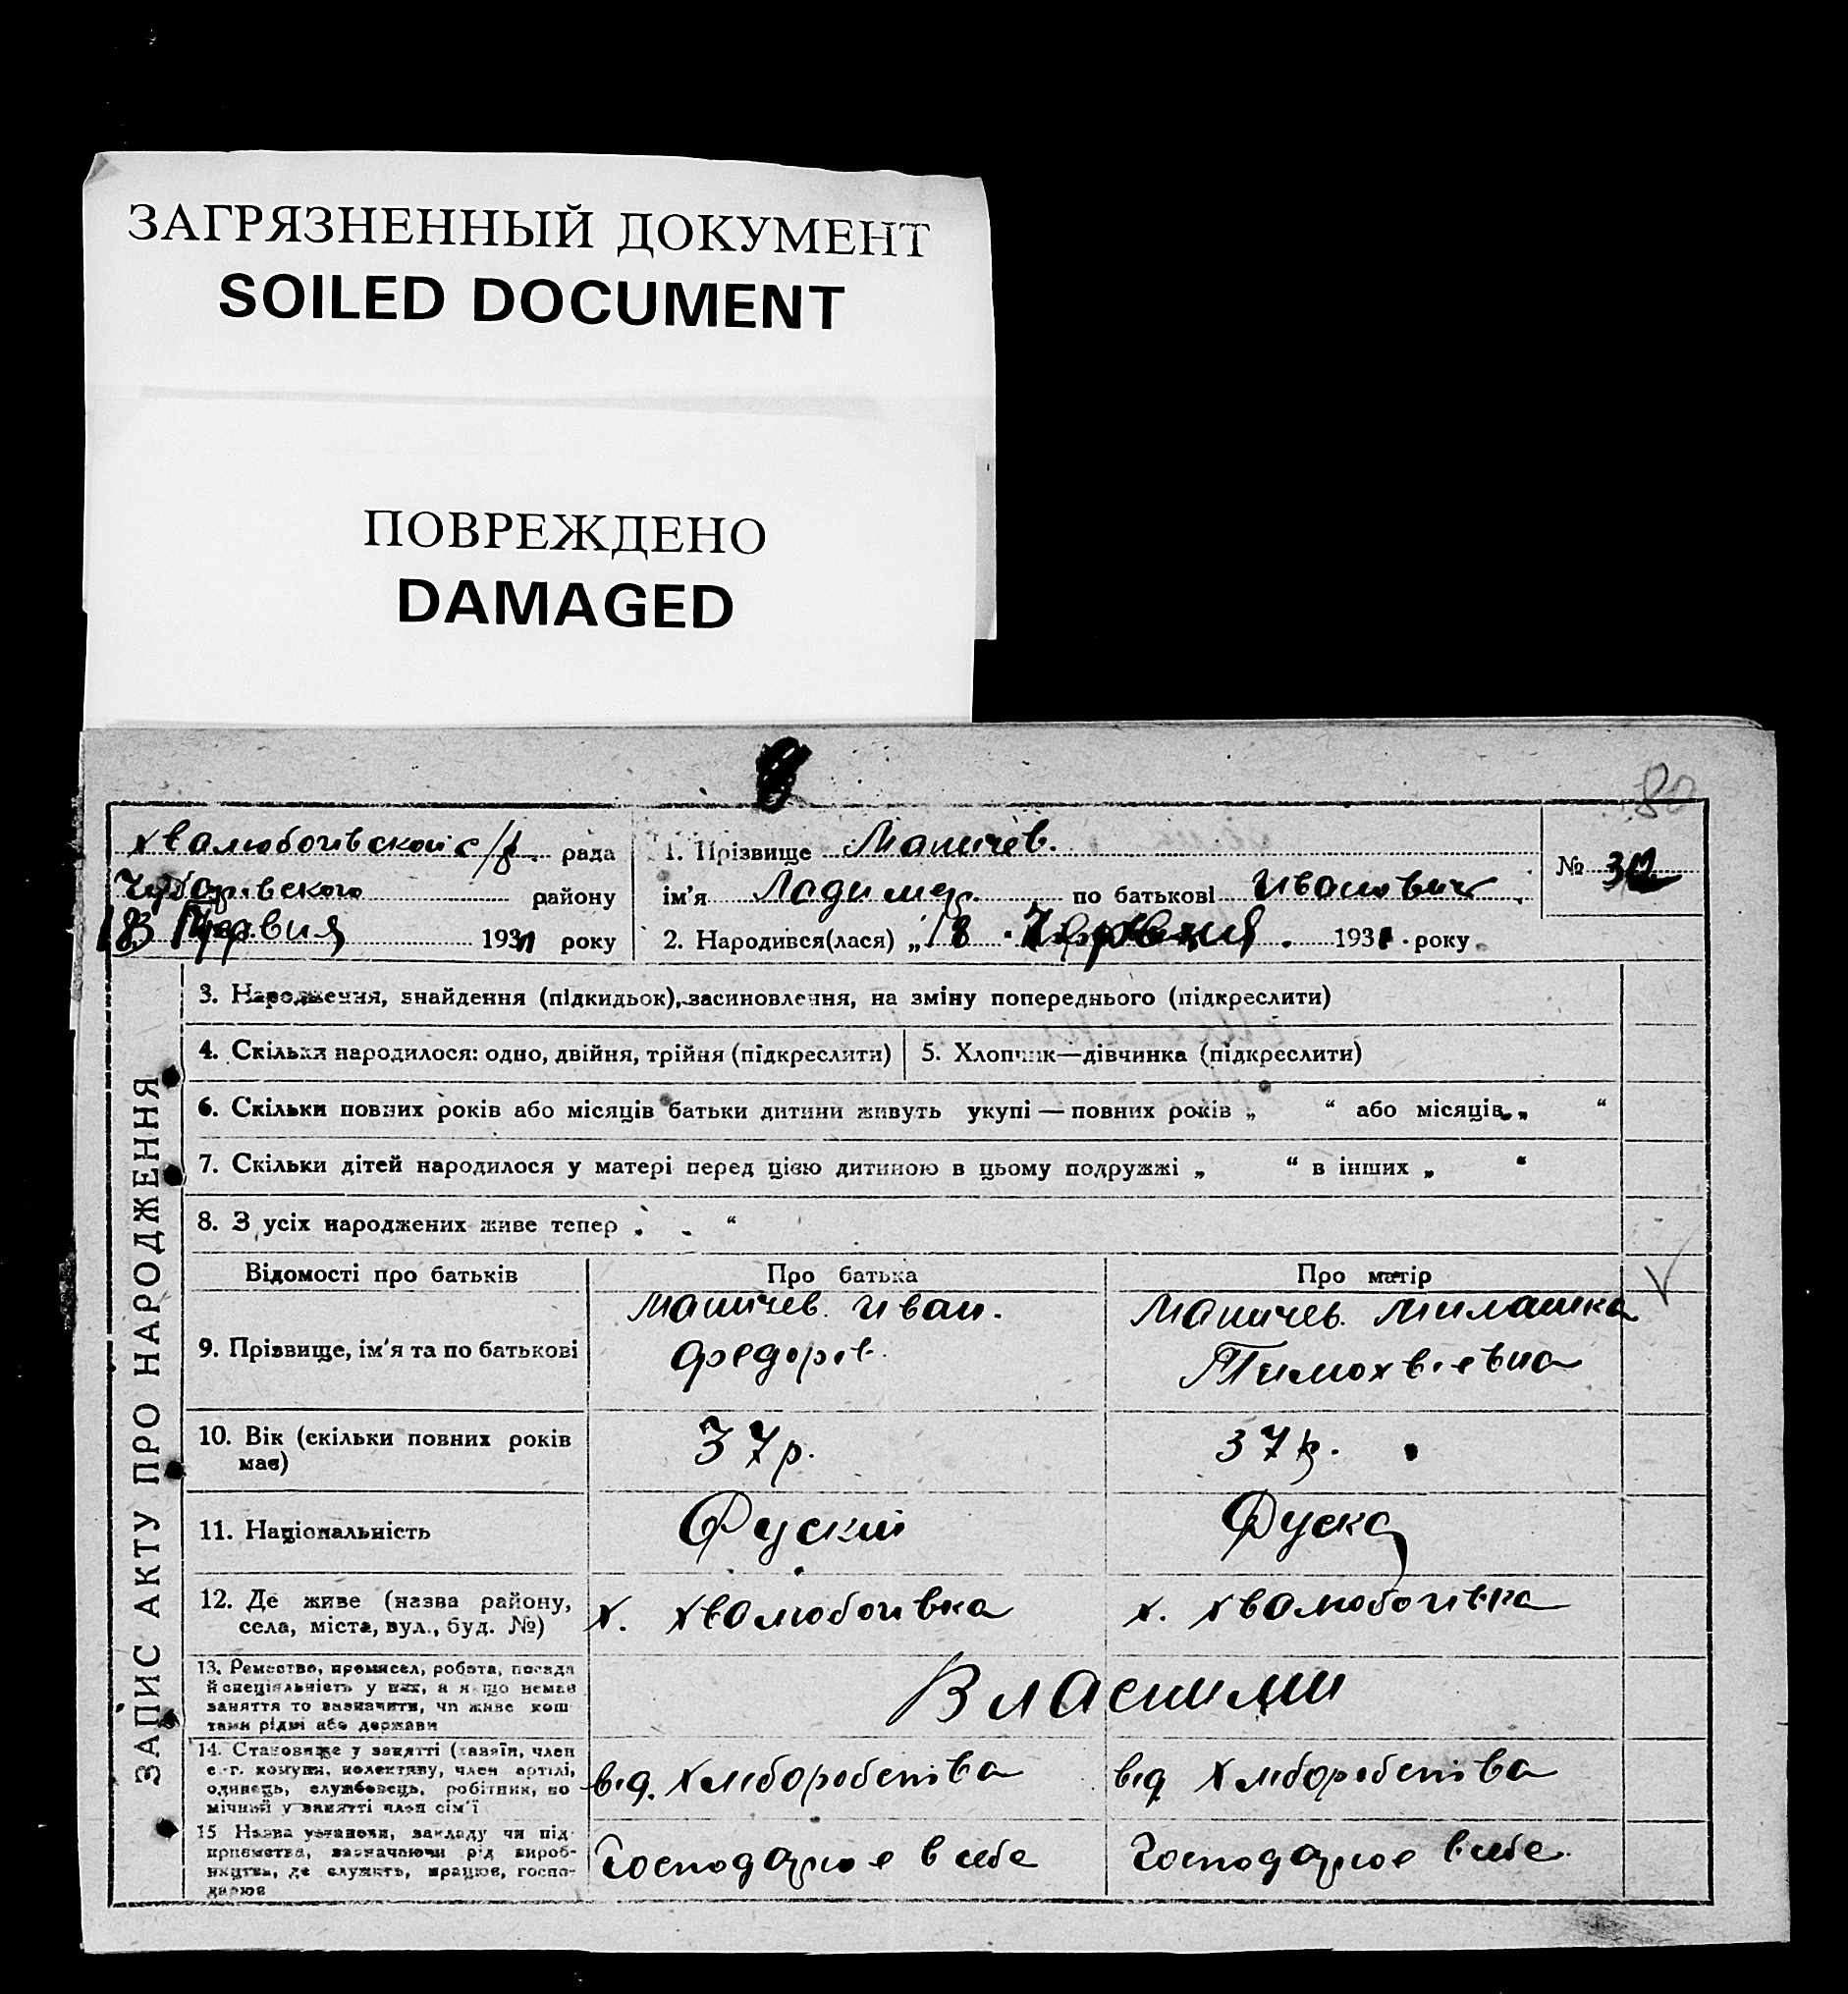 ЗАГРЯЗНЕННЫЙ ДОКУМЕНТ
SOILED DOCUMENT
ПОВРЕЖДЕНО
DAMAGED
80
хвалюбогивской с/р. рада
1. Прізвище Матичев.
№
Чубарівского району
ім'я Ладимер. по батькові Иванович
18 Червня 1931 року
2. Народився(лася) „18 Червня. 1931. року
ЗАПИС АКТУ ПРО НАРОДЖЕННЯ
3. Народження, знайдення (підкидьок), засиновлення, на зміну попереднього (підкреслити)
4. Скільки народилося: одно, двійня, трійня (підкреслити)
5. Хлопчик—дівчинка (підкреслити)
6. Скільки повних років або місяців батьки дитини живуть укупі — повних років „ “ або місяців „ “
7. Скільки дітей народилося у матері перед цією дитиною в цьому подружжі „ “ в інших „ “
8. З усіх народжених живе тепер „ “
Відомості про батьків
Про батька
Про матір
9. Прізвище, ім'я та по батькові
Матичев. Иван.
Федоров.
Матичев. Милашка
Тимохвіевна
10. Вік (скільки повних років
має)
37 р.
37 р.
11. Національність
Руский
Руска
12. Де живе (назва району,
села, міста, вул., буд. №)
х. хвалюбогивка
х. хвалюбогивка
13. Ремество, промисел, робота, посада
й спеціяльність у них, а якщо немає
заняття то зазначити, чи живе кош
тами рідні або держави
Власними
14. Становище у занятті (хазяїн, член
с.-г. комуни, колективу, член артілі,
одинець, службовець, робітник, по
мічний у занятті член сім'ї
від. Хліборобства
від Хліборобства
15 Назва установи, закладу чи під-
приємства, зазначаючи рід вироб-
ництва, де служить, працює, госпо-
дарює
Господарює в себе
Господарює в себе.